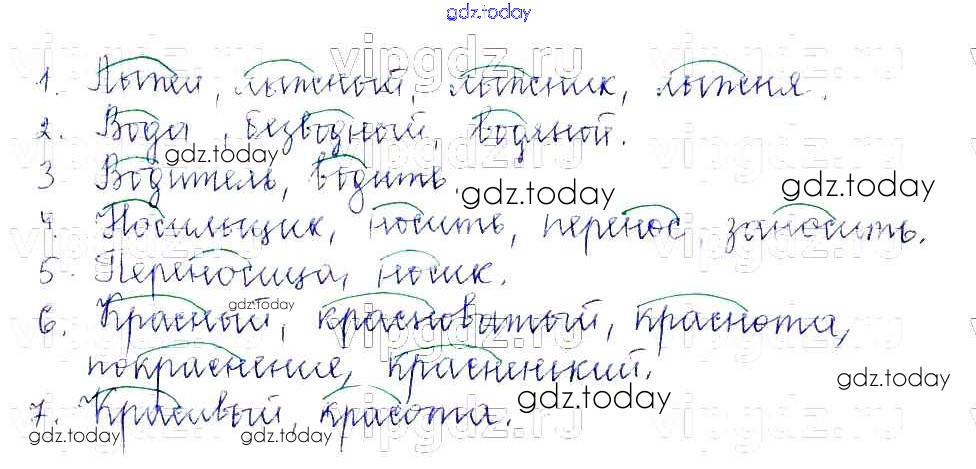 gdz.today
1. Лыжи, лыжный, лыжник, лыжня.
2. Вода, безводный, водяной.
gdz.today
3. Водитель, водить.
gdz.today gdz.today
4. Носильщик, носить, перенос, заносить.
5. Переносица, носик.
gdz.today
6. Красный, красноватый, краснота,
покраснение, красненький.
gdz.today gdz.today
7. Красивый, красота.
gdz.today gdz.today